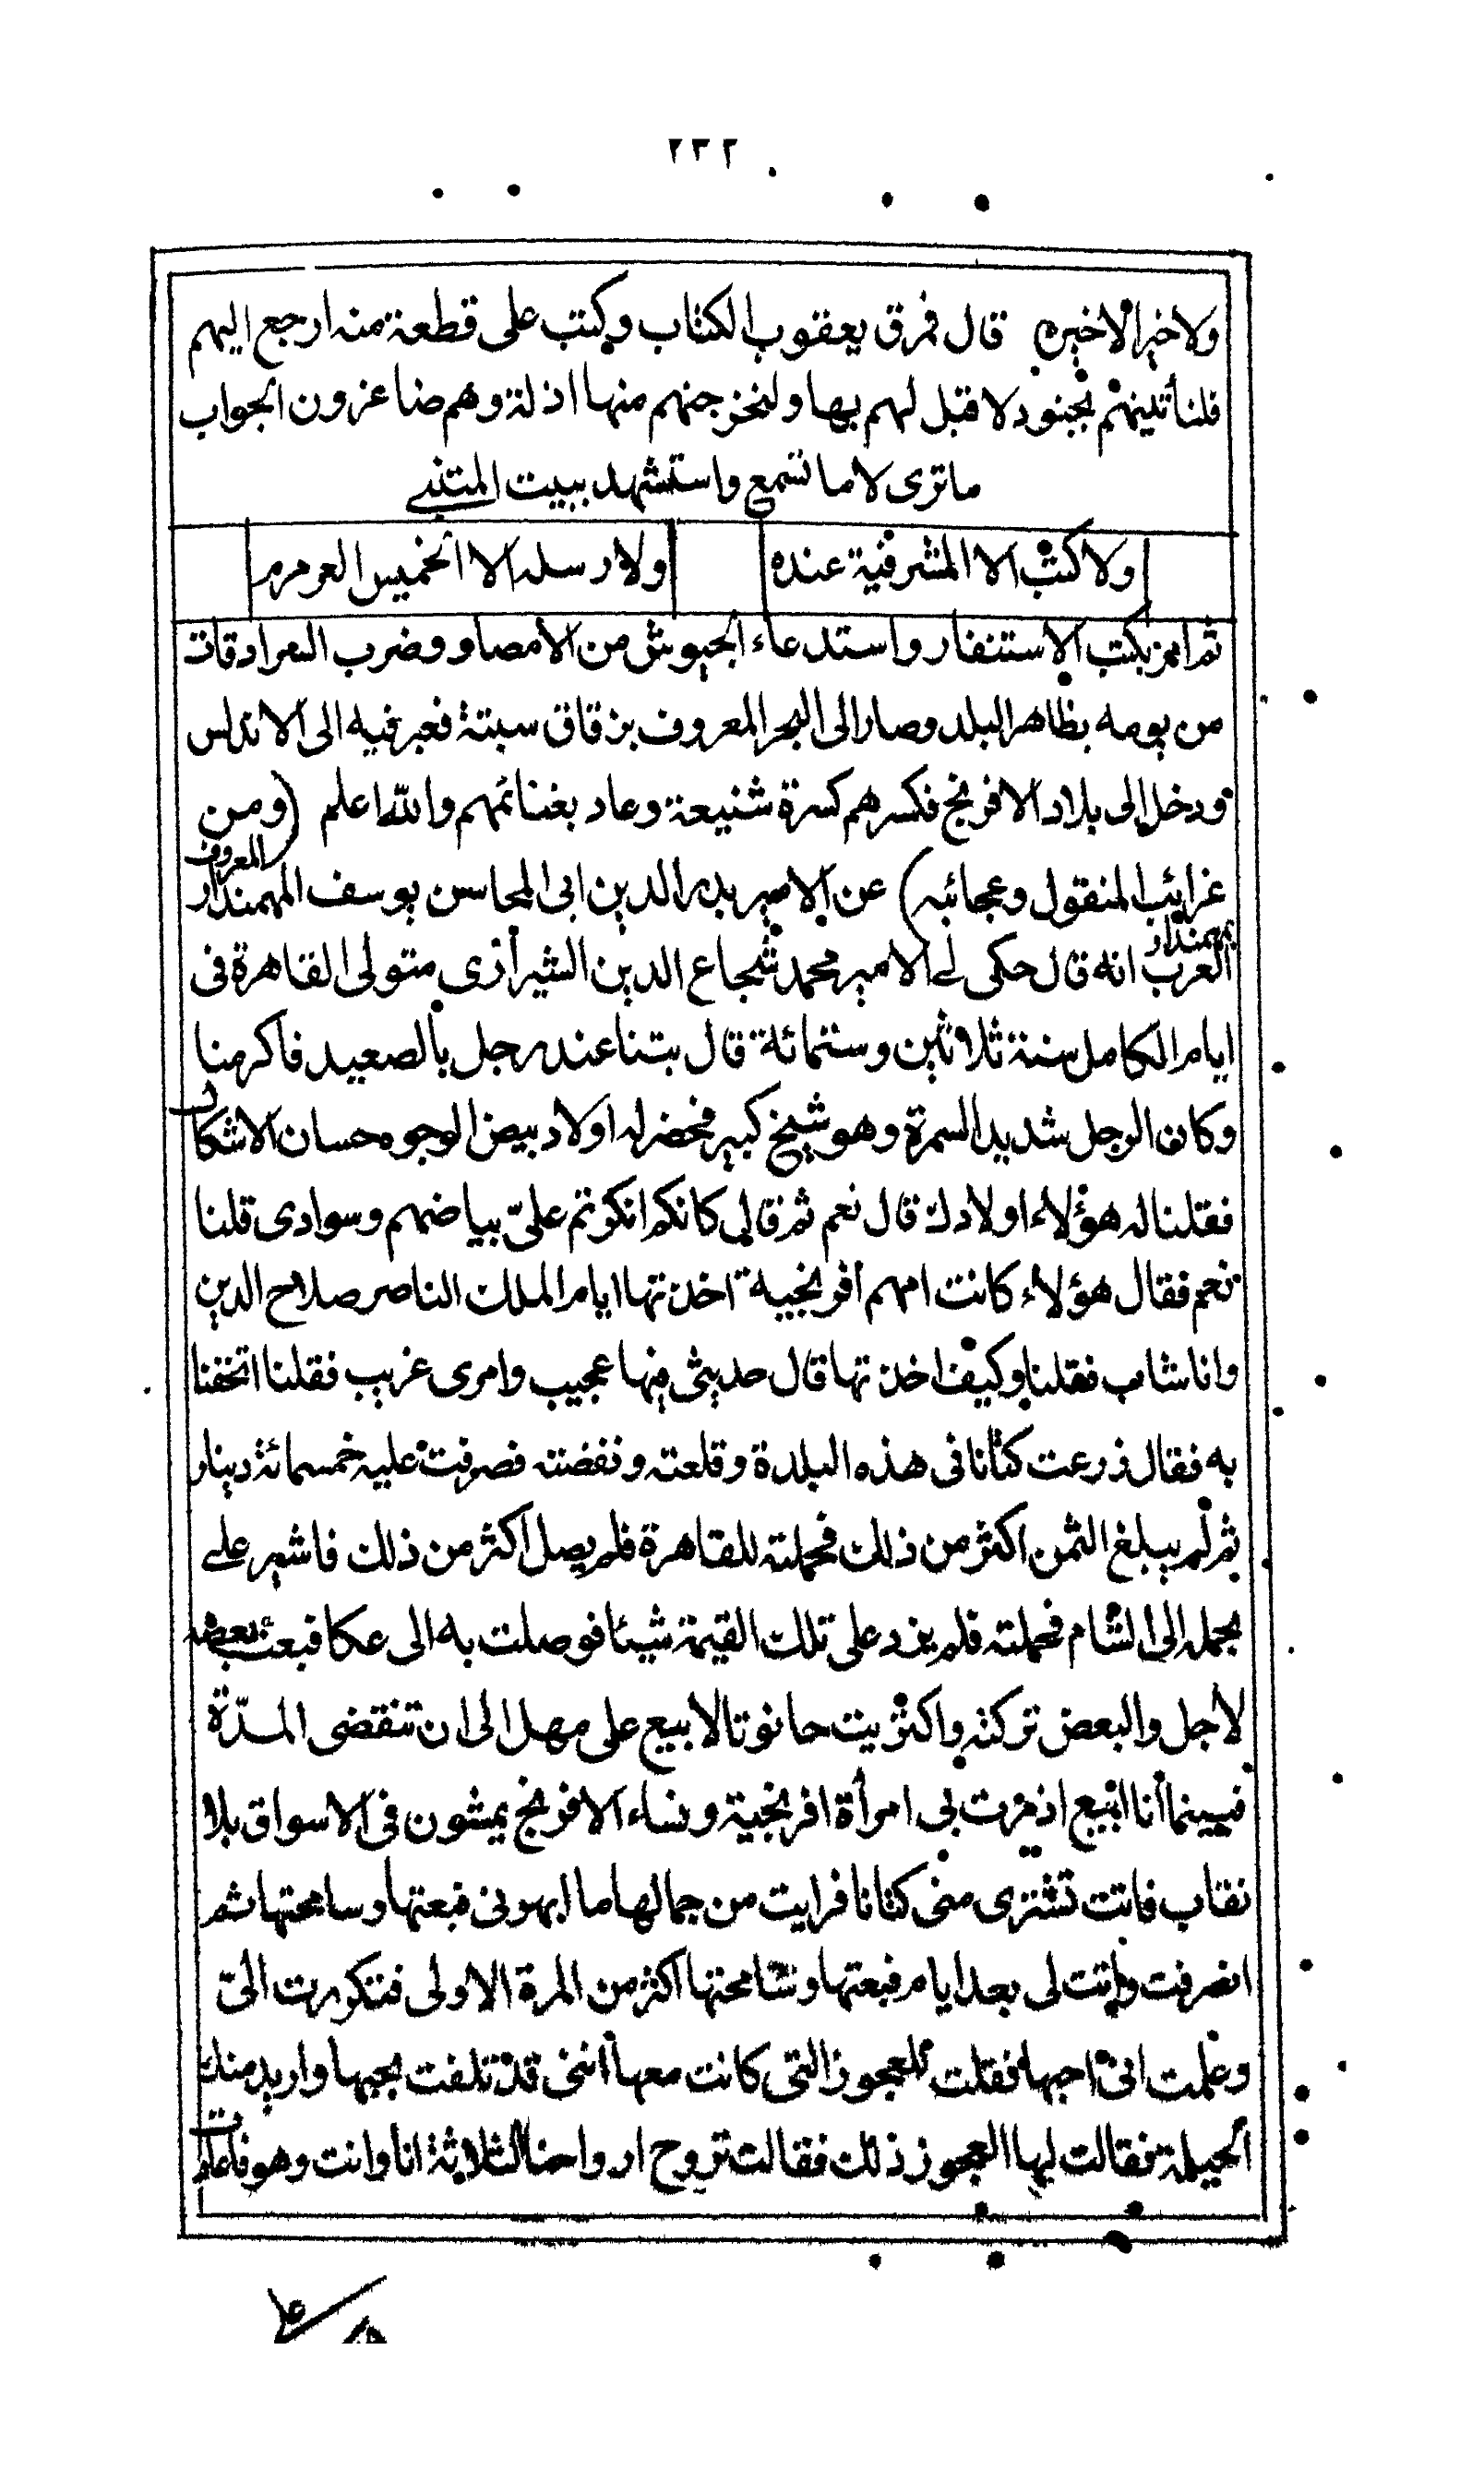 ٢٣٢
ولا خيرا لا خيره قال فمزق يعقوب الكتاب وكتب على قطعة منه ارجع اليهم
فلنأتينهم بجنود لا قبل لهم بها ولنخرجنهم منها اذلة وهم صاغرون الجواب
ما ترى لا ما تسمع واستشهد ببيت المتنبي
ولا كتب الا المشرفية عنده ولا رسله الا الخميس العرمرم
ثم امر بكتب الاستنفار واستدعاء الجيوش من الامصار وضرب السرادقات
من يومه بظاهر البلد وصار الى البحر المعروف بزقاق سبتة فعبر فيه الى الاندلس
ودخل الى بلاد الافرنج فكسرهم كسرة شنيعة وعاد بغنائمهم والله اعلم (ومن
غرائب المنقول وعجائبه) عن الامير بدر الدين ابى المحاسن يوسف المهمندار المعروف
بمهمندار العرب انه قال حكى لي الامير محمد شجاع الدين الشيرازى متولى القاهرة فى
ايام الكامل سنة ثلاثين وستمائة قال بتنا عند رجل بالصعيد فاكرمنا
وكان الرجل شديد السمرة وهو شيخ كبير فحضر له اولاد بيض الوجوه حسان الاشكال
فقلنا له هؤلاء اولادك قال نعم ثم قال لى كانكم انكرتم علىّ بياضهم وسوادى قلنا
نعم فقال هؤلاء كانت امهم افرنجية اخذتها ايام الملك الناصر صلاح الدين
وانا شاب فقلنا وكيف اخذتها قال حديثى فيها عجيب وامرى غريب فقلنا اتحفنا
به فقال زرعت كتانا فى هذه البلدة وقلعته ونفضته فصرفت عليه خمسمائة دينار
ثم لم يبلغ الثمن اكثر من ذلك فحملته للقاهرة فلم يصل اكثر من ذلك فاشير علي
بحمله الى الشام فحملته فلم يزد على تلك القيمة شيئا فوصلت به الى عكا فبعت بعضه
لأجل والبعض تركته واكتريت حانوتا لابيع على مهل الى ان تنقضى المدّة
فبينما أنا ابيع اذ مرت بى امرأة افرنجية ونساء الافرنج يمشون فى الاسواق بلا
نقاب فاتت تشترى منى كتانا فرايت من جمالها ما ابهرنى فبعتها وسامحتها ثم
انصرفت واتت لى بعد ايام فبعتها وسامحتها اكثر من المرة الاولى فتكررت الىّ
وعلمت انى احبها فقلت للعجوز التى كانت معها اننى قد تلفت بحبها واريد منك
الحيلة فقالت لها العجوز ذلك فقالت تروح ارواحنا الثلاثة انا وانت وهو